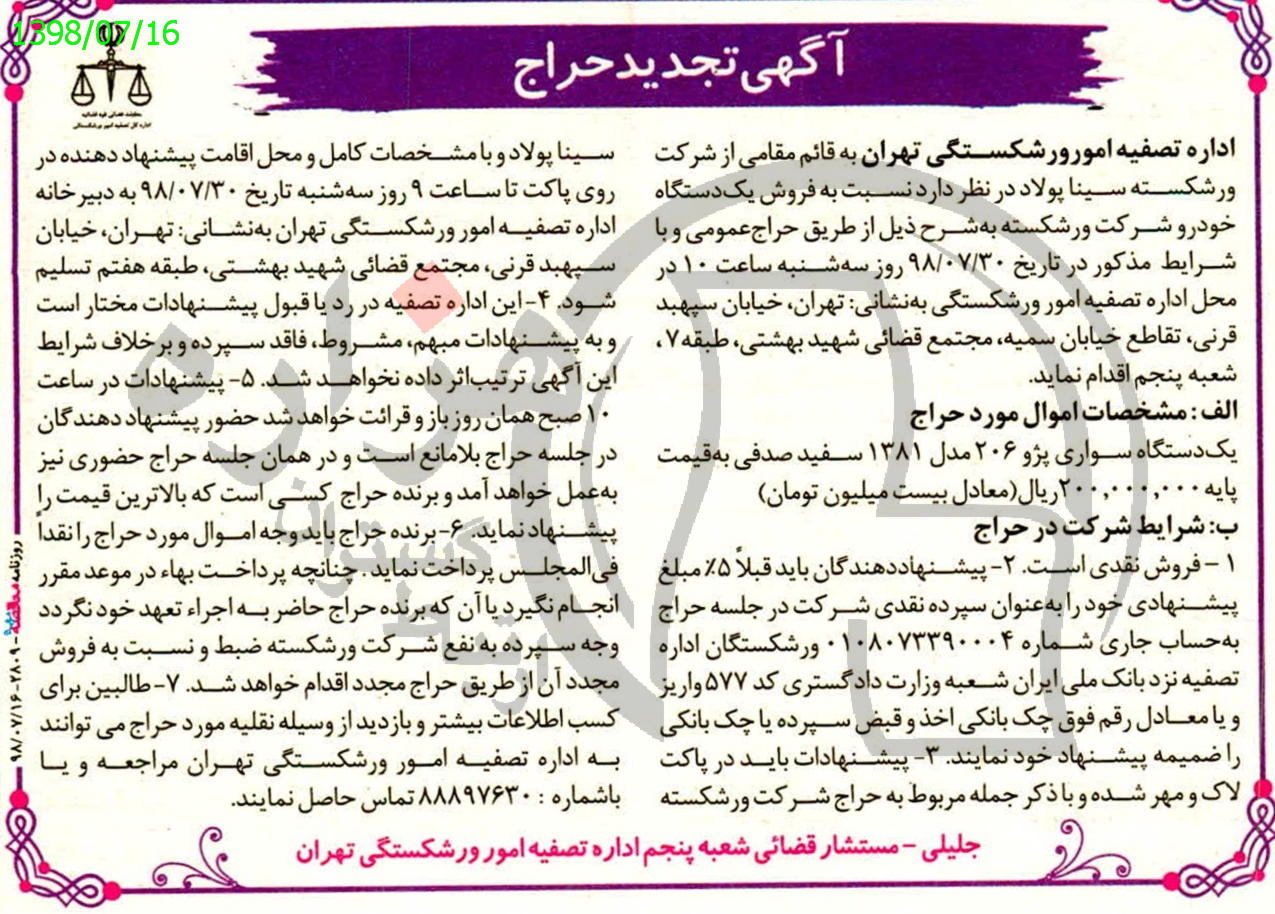 1398/07/16
آگهی تجدید حراج
معاونت قضائی قوه قضائیه
اداره کل تصفیه امور ورشکستگی
اداره تصفیه امورورشکستگی تهران به قائم مقامی از شرکت
ورشکسته سینا پولاد در نظر دارد نسبت به فروش یک‌دستگاه
خودرو شرکت ورشکسته به‌شرح ذیل از طریق حراج‌عمومی و با
شرایط مذکور در تاریخ ۹۸/۰۷/۳۰ روز سه‌شنبه ساعت ۱۰ در
محل اداره تصفیه امور ورشکستگی به‌نشانی: تهران، خیابان سپهبد
قرنی، تقاطع خیابان سمیه، مجتمع قضائی شهید بهشتی، طبقه ۷ ،
شعبه پنجم اقدام نماید.
الف: مشخصات اموال مورد حراج
یک‌دستگاه سواری پژو ۲۰۶ مدل ۱۳۸۱ سفید صدفی به‌قیمت
پایه ۲۰۰,۰۰۰,۰۰۰ریال(معادل بیست میلیون تومان)
ب: شرایط شرکت در حراج
۱ – فروش نقدی است. ۲- پیشنهاددهندگان باید قبلاً ۵٪ مبلغ
پیشنهادی خود را به‌عنوان سپرده نقدی شرکت در جلسه حراج
به‌حساب جاری شماره ۰۱۰۸۰۷۳۳۹۰۰۰۴ ورشکستگان اداره
تصفیه نزد بانک ملی ایران شعبه وزارت دادگستری کد ۵۷۷ واریز
و یا معادل رقم فوق چک بانکی اخذ و قبض سپرده یا چک بانکی
را ضمیمه پیشنهاد خود نمایند. ۳- پیشنهادات باید در پاکت
لاک و مهر شده و با ذکر جمله مربوط به حراج شرکت ورشکسته
سینا پولاد و با مشخصات کامل و محل اقامت پیشنهاد دهنده در
روی پاکت تا ساعت ۹ روز سه‌شنبه تاریخ ۹۸/۰۷/۳۰ به دبیرخانه
اداره تصفیه امور ورشکستگی تهران به‌نشانی: تهران، خیابان
سپهبد قرنی، مجتمع قضائی شهید بهشتی، طبقه هفتم تسلیم
شود. ۴- این اداره تصفیه در رد یا قبول پیشنهادات مختار است
و به پیشنهادات مبهم، مشروط، فاقد سپرده و برخلاف شرایط
این آگهی ترتیب‌اثر داده نخواهد شد. ۵- پیشنهادات در ساعت
۱۰ صبح همان روز باز و قرائت خواهد شد حضور پیشنهاد دهندگان
در جلسه حراج بلامانع است و در همان جلسه حراج حضوری نیز
به‌عمل خواهد آمد و برنده حراج کسی است که بالاترین قیمت را
پیشنهاد نماید. ۶- برنده حراج باید وجه اموال مورد حراج را نقداً
فی‌المجلس پرداخت نماید. چنانچه پرداخت بهاء در موعد مقرر
انجام نگیرد یا آن که برنده حراج حاضر به اجراء تعهد خود نگردد
وجه سپرده به نفع شرکت ورشکسته ضبط و نسبت به فروش
مجدد آن از طریق حراج مجدد اقدام خواهد شد. ۷- طالبین برای
کسب اطلاعات بیشتر و بازدید از وسیله نقلیه مورد حراج می توانند
به اداره تصفیه امور ورشکستگی تهران مراجعه و یا
باشماره : ۸۸۸۹۷۶۳۰ تماس حاصل نمایند.
جلیلی – مستشار قضائی شعبه پنجم اداره تصفیه امور ورشکستگی تهران
روزنامه مناقصه - ۲۸۰۹ - ۹۸/۰۷/۱۶
هزاره
گستران
ارتباط